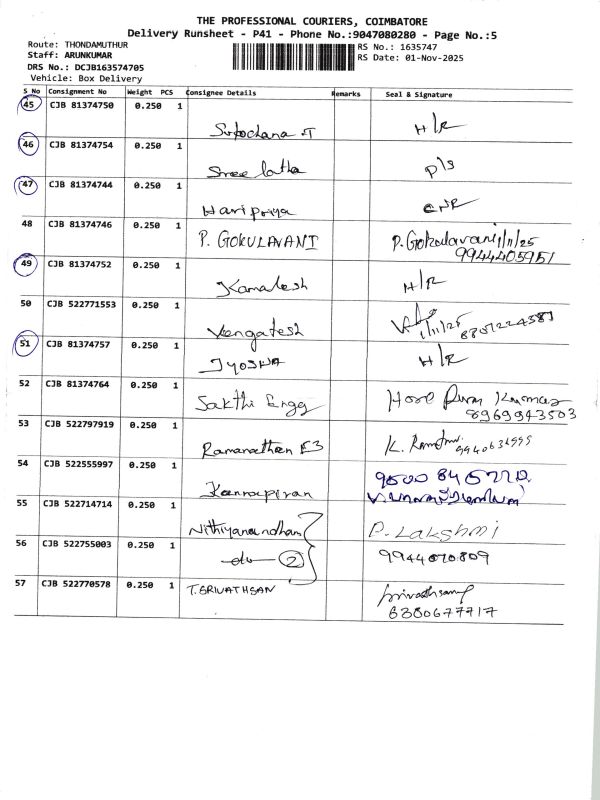 THE PROFESSIONAL COURIERS, COIMBATORE
Delivery Runsheet - P41 - Phone No.:9047080280 - Page No.:5
Route: THONDAMUTHUR
RS No.: 1635747
Staff: ARUNKUMAR
RS Date: 01-Nov-2025
DRS No.: DCJB163574705
Vehicle: Box Delivery
S No Consignment No Weight PCS Consignee Details Remarks Seal & Signature
45 CJB 81374750 0.250 1 H/R
46 CJB 81374754 0.250 1 Sree latha P/S
47 CJB 81374744 0.250 1 Haripriya
48 CJB 81374746 0.250 1 P. GOKULAVANI P. Gokulavani 1/11/25
9944405951
49 CJB 81374752 0.250 1 Kamalesh H/R
50 CJB 522771553 0.250 1 Vengatesh 1/11/25
51 CJB 81374757 0.250 1 H/R
52 CJB 81374764 0.250 1 Sakthi Engg
8969943503
53 CJB 522797919 0.250 1 Ramanathan K.
54 CJB 522555997 0.250 1
55 CJB 522714714 0.250 1 Nithiyanandhan P. Lakshmi
56 CJB 522755003 0.250 1 -do- 2 9944070809
57 CJB 522770578 0.250 1 T. SRIVATHSAN Srivathsan
6380677717